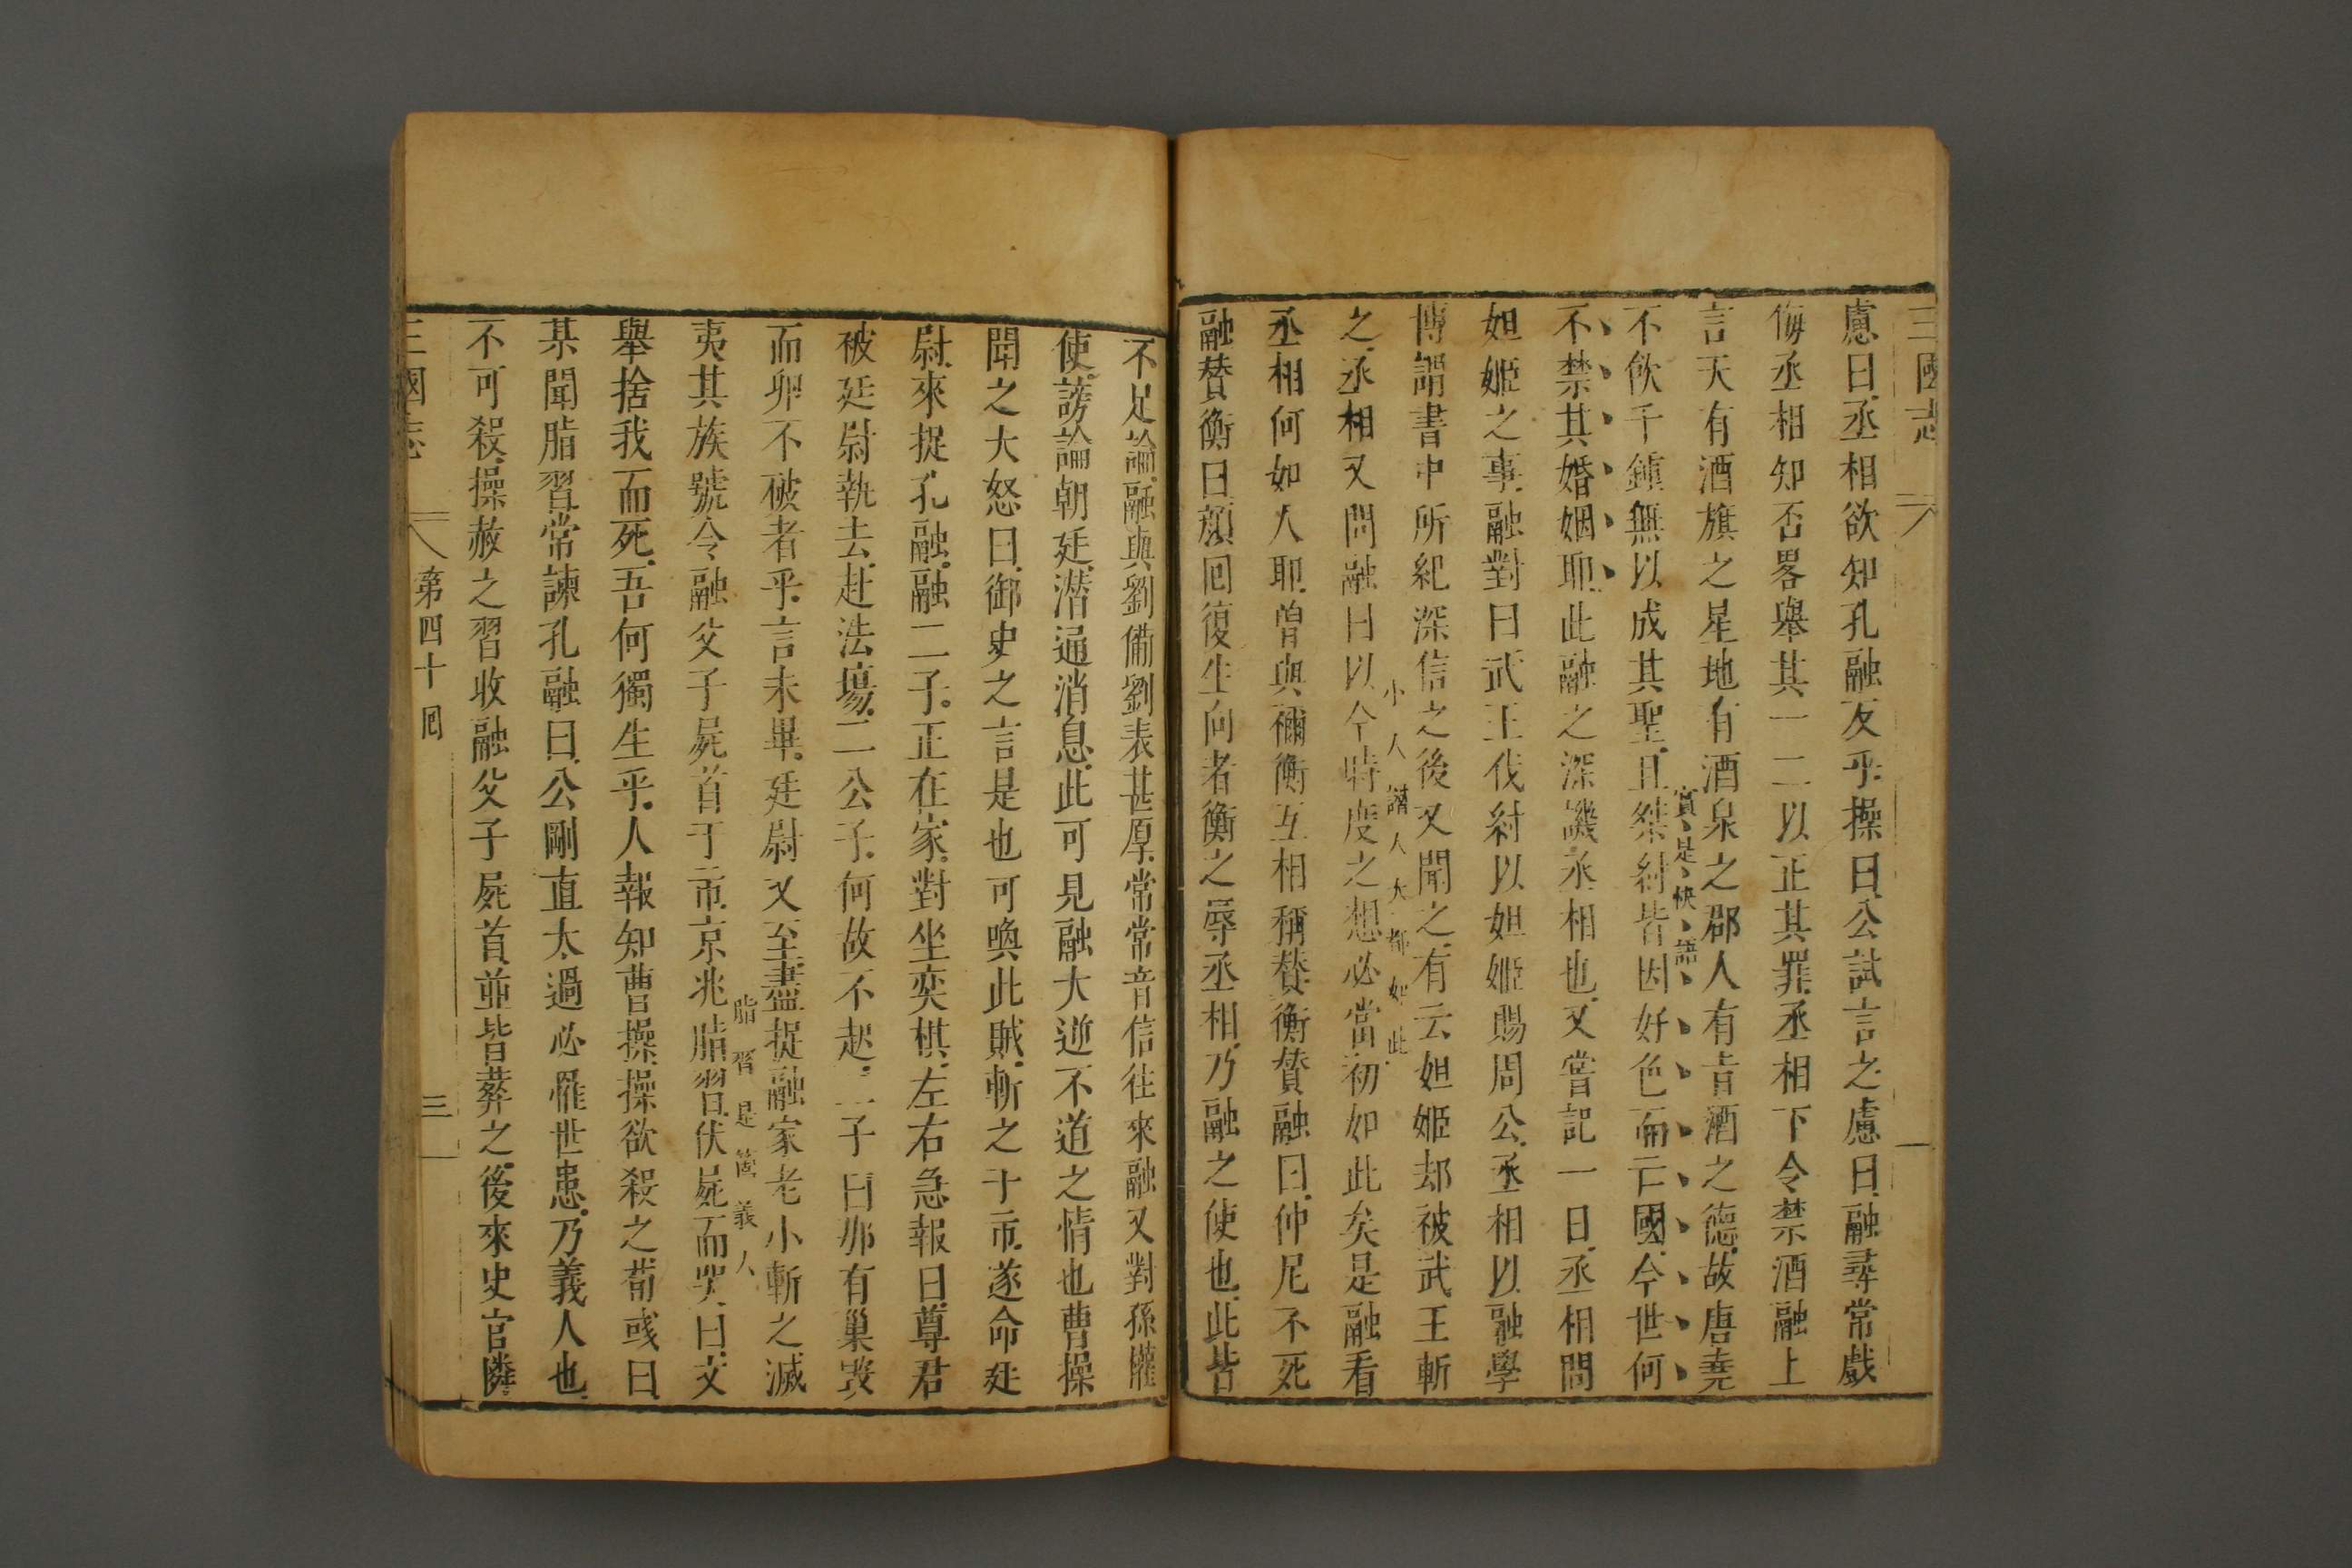 三國志
慮曰丞相欲知孔融友乎操曰公試言之慮曰融尋常戲
侮丞相知否畧舉其一二以正其罪丞相下令禁酒融上
言天有酒旗之星地有酒泉之郡人有旨酒之德故唐堯
實是快語
不飲千鍾無以成其聖且桀紂皆因好色而亡國今世何
不禁其婚姻耶此融之深譏丞相也又嘗記一日丞相問
妲姬之事融對曰武王伐紂以妲姬賜周公丞相以融學
博謂書中所紀深信之後又聞之有云妲姬却被武王斬
小人譖人大都如此
之丞相又問融曰以今時度之想必當初如此矣是融看
丞相何如人耶曾與禰衡互相稱贊衡贊融曰仲尼不死
融贊衡曰顔回復生向者衡之辱丞相乃融之使也此皆
不足論融與劉備劉表甚厚常常音信往來融又對孫權
使謗論朝廷潜通消息此可見融大逆不道之情也曹操
聞之大怒曰御史之言是也可喚此賊斬之于市遂命廷
尉來捉孔融融二子正在家對坐奕棋左右急報曰尊君
被廷尉執去赴法場二公子何故不起二子曰那有巢毀
而卵不破者乎言未畢廷尉又至盡捉融家老小斬之滅
脂習是箇義人
夷其族號令融父子屍首于市京兆脂習伏屍而哭曰文
舉捨我而死吾何獨生乎人報知曹操操欲殺之荀彧曰
某聞脂習常諫孔融曰公剛直太過必罹世患乃義人也
不可殺操赦之習收融父子屍首並皆葬之後來史官隣
三國志 第四十回 三